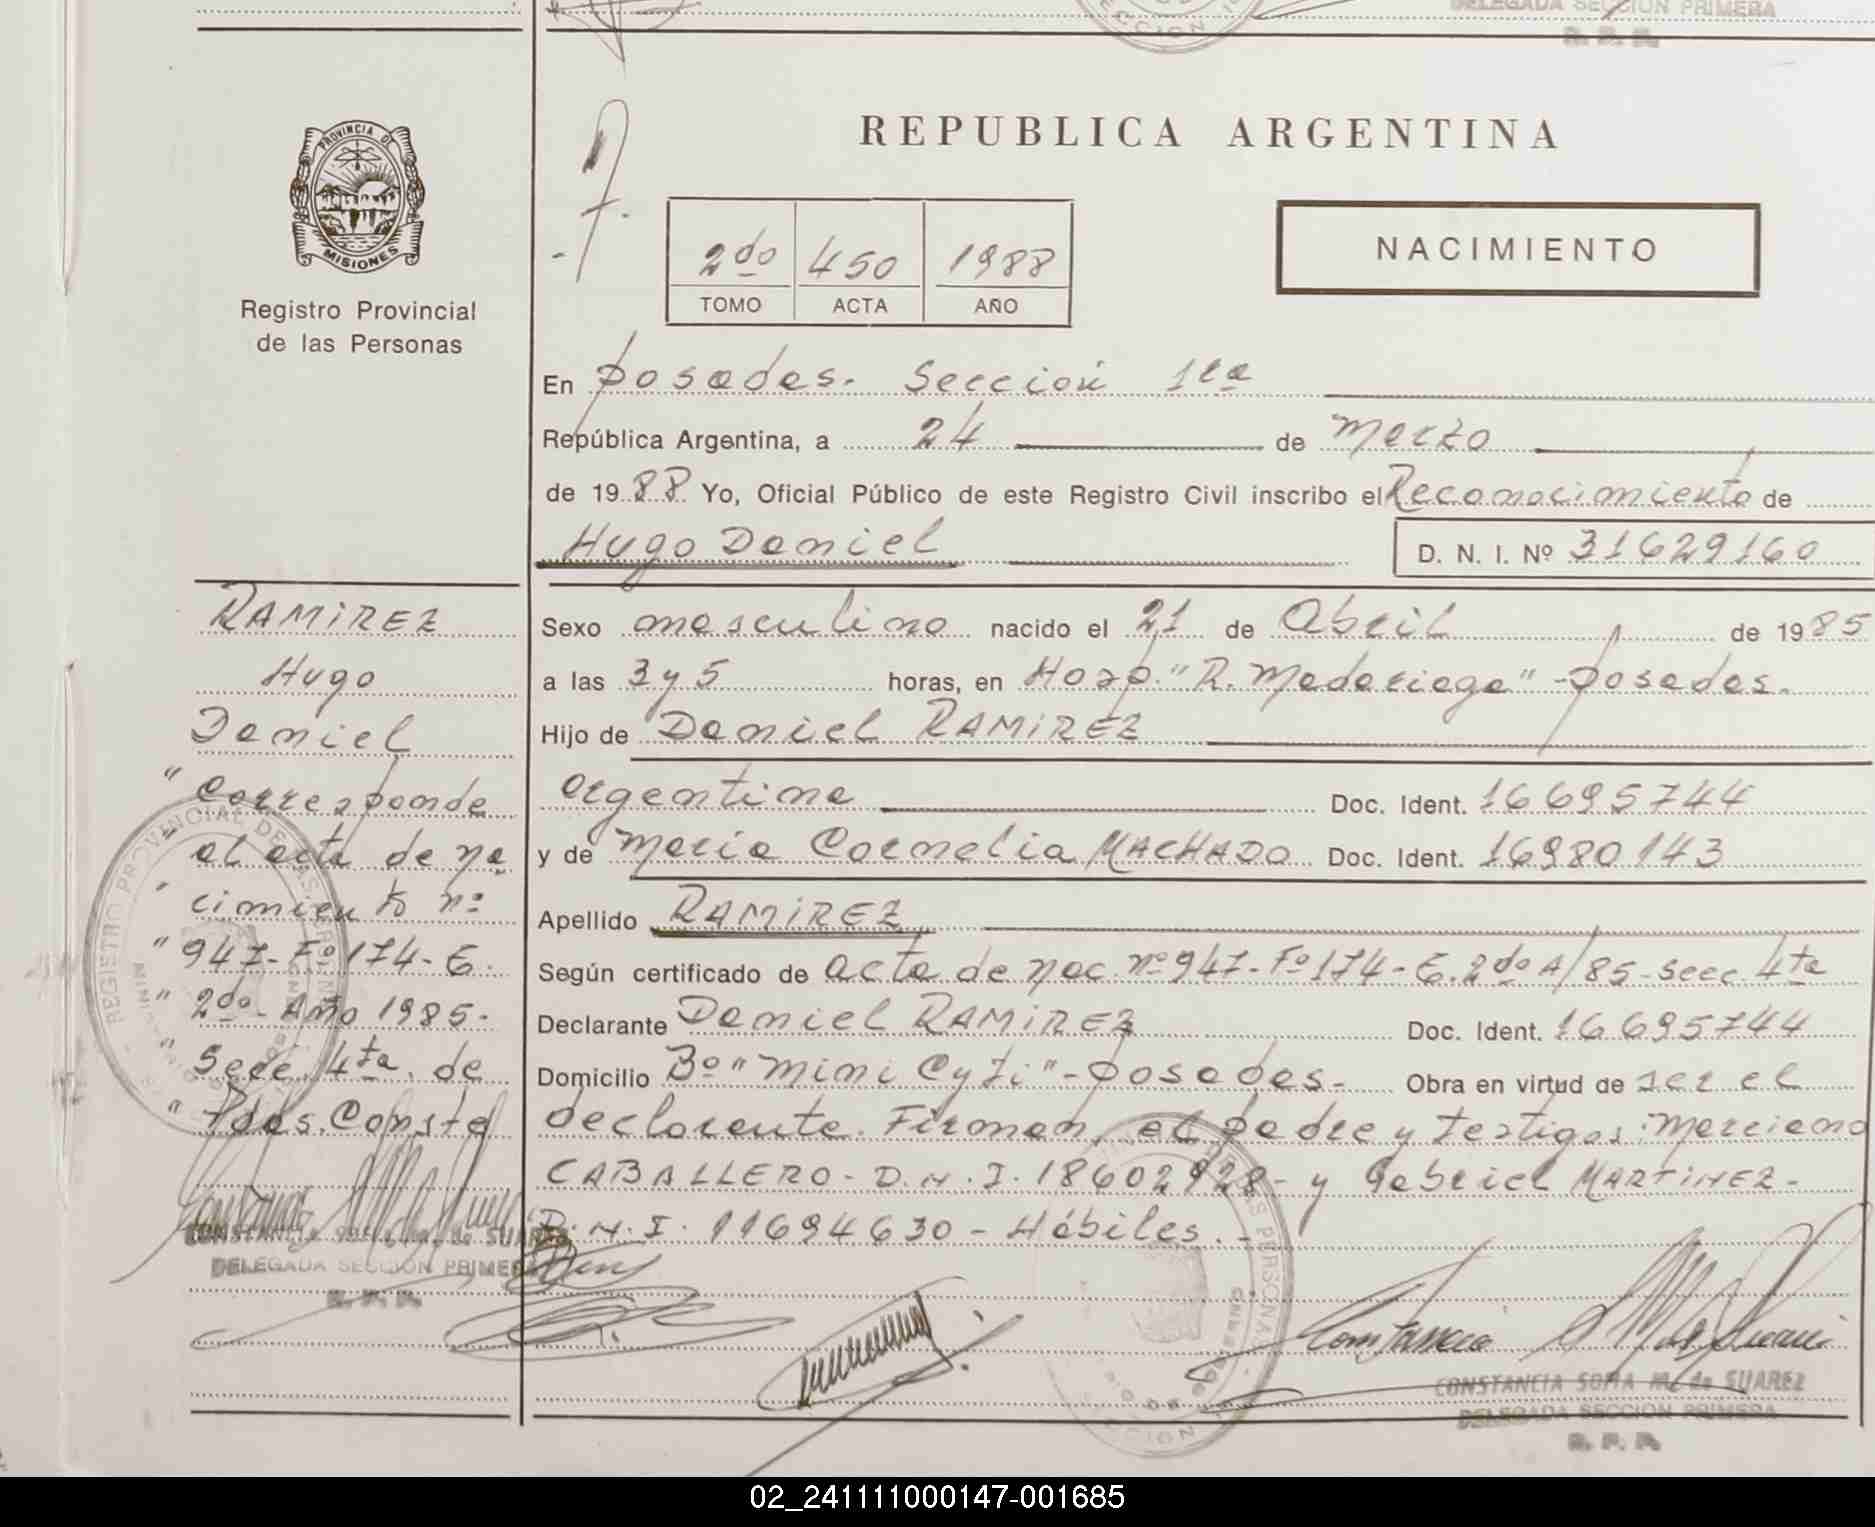 DELEGADA SECCION PRIMERA
R. P. P.
PROVINCIA DE
MISIONES
Registro Provincial
de las Personas
REPUBLICA ARGENTINA
2do 450 1988
TOMO ACTA AÑO
NACIMIENTO
En Posadas. Sección 1ra
República Argentina, a 24 de Marzo
de 1988 Yo, Oficial Público de este Registro Civil inscribo el Reconocimiento de
Hugo Daniel D. N. I. Nº 31629160
RAMIREZ
Hugo
Daniel
"Corresponde
" al acta de na
" cimiento nº
" 947-Fº174-E.
" 2do- Año 1985.
" Secc. 4ta. de
" Pdas. Conste
CONSTANCIA SOFIA M. de SUAREZ
DELEGADA SECCION PRIMERA
R. P. P.
Sexo masculino nacido el 21 de Abril de 1985
a las 3 y 5 horas, en Hosp. "R. Madariaga" - Posadas.
Hijo de Daniel RAMIREZ
argentina Doc. Ident. 16695744
y de Maria Cornelia MACHADO Doc. Ident. 16980143
Apellido RAMIREZ
Según certificado de acta de nac. nº 947-Fº174-E. 2do A/85-Secc. 4ta
Declarante Daniel RAMIREZ Doc. Ident. 16695744
Domicilio Bº "Mini Cyti" - Posadas - Obra en virtud de ser el
declarante. Firman, el padre y testigos: Marciano
CABALLERO - D.N.I. 18602928 - y Gabriel MARTINEZ -
D.N.I. 11694630 - Hábiles. -
CONSTANCIA SOFIA M. de SUAREZ
DELEGADA SECCION PRIMERA
R. P. P.
02_241111000147-001685